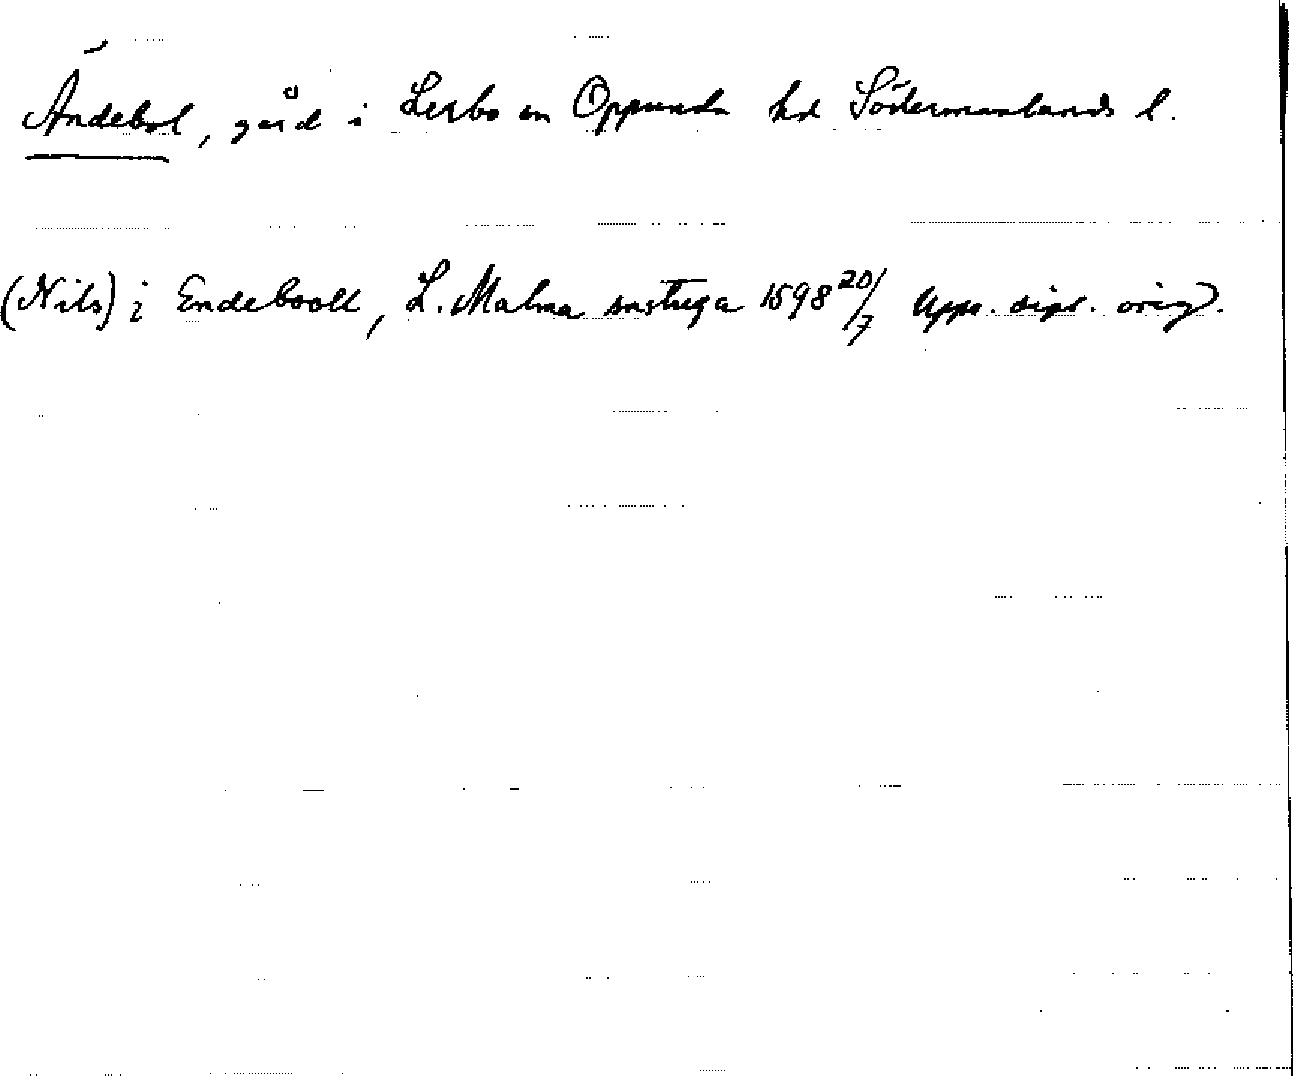 Ändebol, gård i Lerbo sn Oppunda hd Södermanlands l.
(Nils) i Endebooll, L. Malma sn 1598 20/7 Upps. dipl. orig.